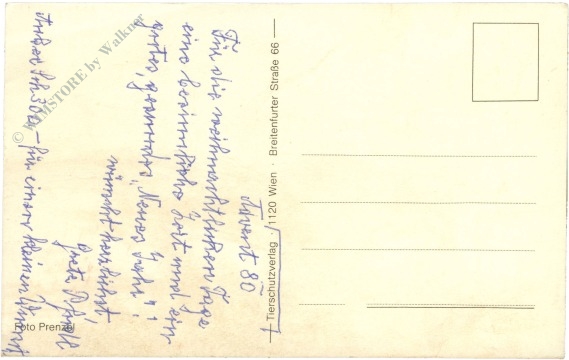 Advent 80
Für die weihnachtlichen Tage
eine besinnliche Zeit und ein
gutes, gesundes „Neues Jahr“!
wünscht herzlichst
Grete
für einen kleinen
Tierschutzverlag · 1120 Wien · Breitenfurter Straße 66
Foto Prenzel
© FILMSTORE by Walkner